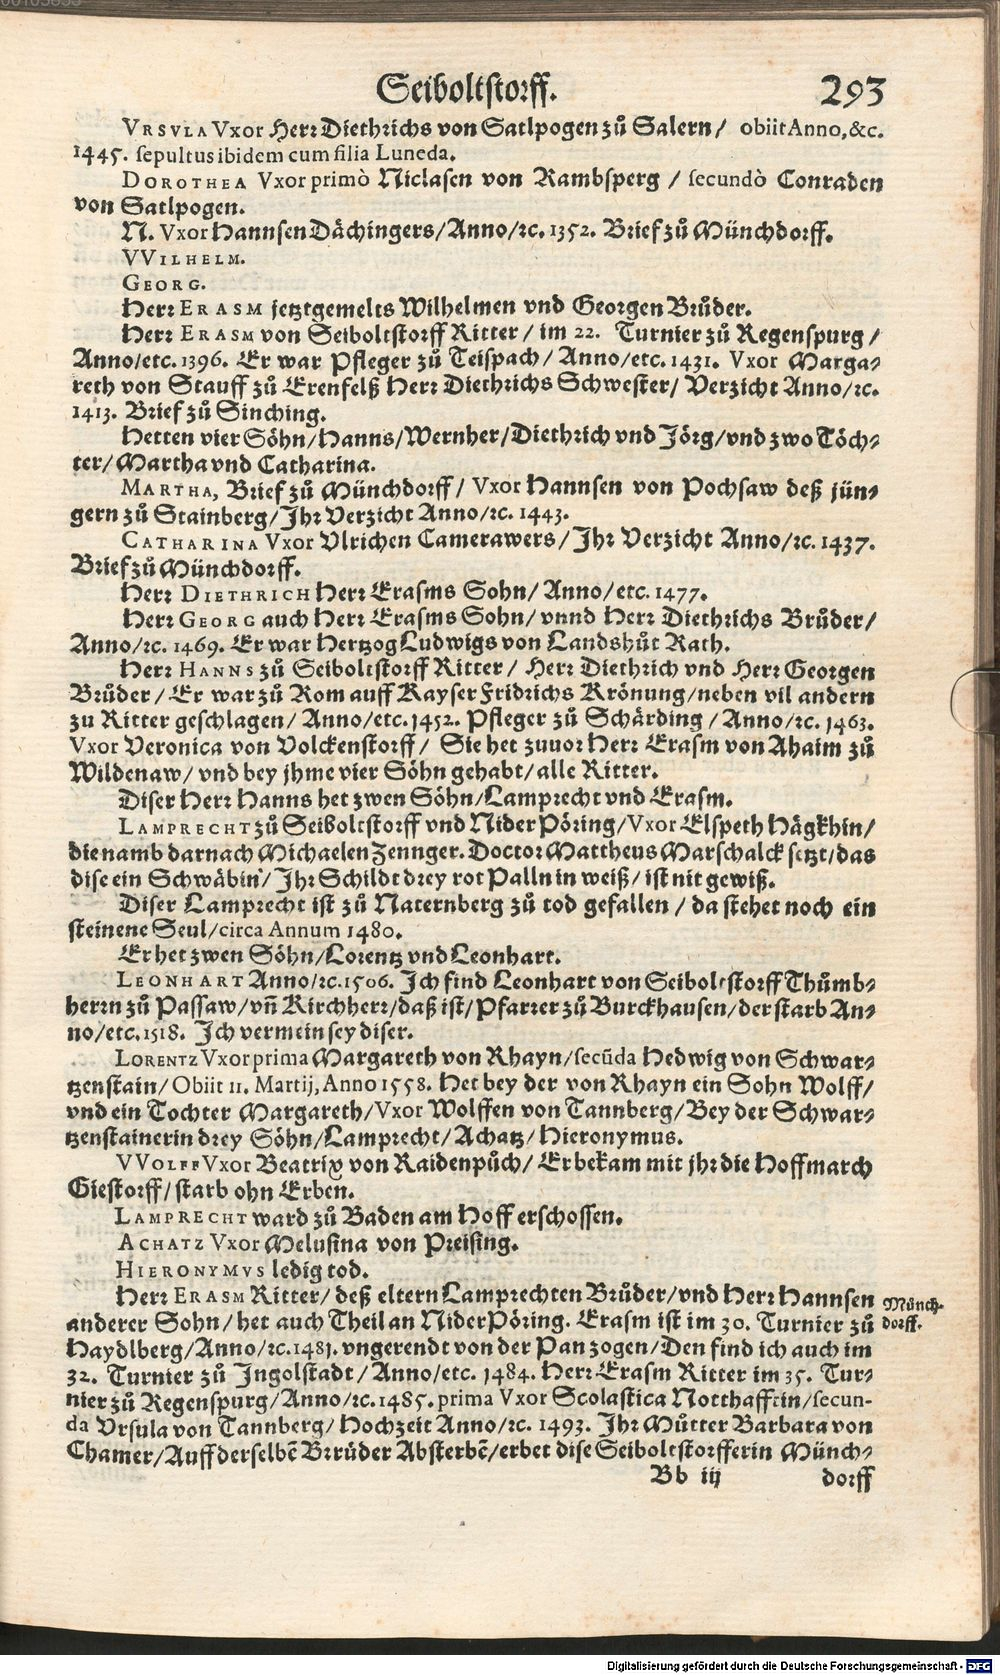 Seiboltstorff. 293
VRSVLA Vxor Herr Diethrichs von Satlpogen zů Salern / obiit Anno, &c.
1445. sepultus ibidem cum filia Luneda.
DOROTHEA Vxor primò Niclasen von Rambsperg / secundò Conraden
von Satlpogen.
N. Vxor Hannsen Dächingers / Anno / ꝛc. 1352. Brief zů Münchdorff.
VVILHELM.
GEORG.
Herr ERASM jetztgemelts Wilhelmen vnd Georgen Brůder.
Herr ERASM von Seiboltstorff Ritter / im 22. Turnier zů Regenspurg /
Anno / etc. 1396. Er war Pfleger zů Teispach / Anno / etc. 1431. Vxor Marga-
reth von Stauff zů Erenfelß Herr Diethrichs Schwester / Verzicht Anno / ꝛc.
1413. Brief zů Sinching.
Hetten vier Söhn / Hanns / Wernher / Diethrich vnd Jörg / vnd zwo Töch-
ter / Martha vnd Catharina.
MARTHA, Brief zů Münchdorff / Vxor Hannsen von Pochsaw deß jün-
gern zů Stainberg / Jhr Verzicht Anno / ꝛc. 1443.
CATHARINA Vxor Vlrichen Camerawers / Jhr Verzicht Anno / ꝛc. 1437.
Brief zů Münchdorff.
Herr DIETHRICH Herr Erasms Sohn / Anno / etc. 1477.
Herr GEORG auch Herr Erasms Sohn / vnnd Herr Diethrichs Brůder /
Anno / ꝛc. 1469. Er war Hertzog Ludwigs von Landshůt Rath.
Herr HANNS zů Seiboltstorff Ritter / Herr Diethrich vnd Herr Georgen
Brůder / Er war zů Rom auff Kayser Fridrichs Krönung / neben vil andern
zu Ritter geschlagen / Anno / etc. 1452. Pfleger zů Schärding / Anno / ꝛc. 1463.
Vxor Veronica von Volckenstorff / Sie het zuuor Herr Erasm von Ahaim zů
Wildenaw / vnd bey jhme vier Söhn gehabt / alle Ritter.
Diser Herr Hanns het zwen Söhn / Lamprecht vnd Erasm.
LAMPRECHT zů Seiboltstorff vnd Nider Pöring / Vxor Elspeth Hägkhin /
die namb darnach Michaelen Zennger. Doctor Mattheus Marschalck setzt / das
dise ein Schwäbin / Jhr Schildt drey rot Palln in weiß / ist nit gewiß.
Diser Lamprecht ist zů Naternberg zů tod gefallen / da stehet noch ein
steinene Seul / circa Annum 1480.
Er het zwen Söhn / Lorentz vnd Leonhart.
LEONHART Anno / ꝛc. 1506. Jch find Leonhart von Seiboltstorff Thůmb-
herrn zů Passaw / vñ Kirchherr / daß ist / Pfarrer zů Burckhausen / der starb An-
no / etc. 1518. Jch vermein sey diser.
LORENTZ Vxor prima Margareth von Rhayn / secũda Hedwig von Schwar-
tzenstain / Obiit 11. Martij, Anno 1558. Het bey der von Rhayn ein Sohn Wolff /
vnd ein Tochter Margareth / Vxor Wolffen von Tannberg / Bey der Schwar-
tzenstainerin drey Söhn / Lamprecht / Achatz / Hieronymus.
VVOLFF Vxor Beatrix von Raidenpůch / Er bekam mit jhr die Hoffmarch
Giestorff / starb ohn Erben.
LAMPRECHT ward zů Baden am Hoff erschossen.
ACHATZ Vxor Melusina von Preising.
HIERONYMVS ledig tod.
Herr ERASM Ritter / deß eltern Lamprechten Brůder / vnd Herr Hannsen
anderer Sohn / het auch Theil an Nider Pöring. Erasm ist im 30. Turnier zů
Münch-
dorff.
Haydlberg / Anno / ꝛc. 1481. vngerendt von der Pan zogen / Den find ich auch im
32. Turnier zů Jngolstadt / Anno / etc. 1484. Herr Erasm Ritter im 35. Tur-
nier zů Regenspurg / Anno / ꝛc. 1485. prima Vxor Scolastica Notthafftin / secun-
da Vrsula von Tannberg / Hochzeit Anno / ꝛc. 1493. Jhr Můtter Barbara von
Chamer / Auff derselbẽ Brrůder Absterbẽ / erbet dise Seiboltstorfferin Münch-
Bb iij dorff
Digitalisierung gefördert durch die Deutsche Forschungsgemeinschaft - DFG